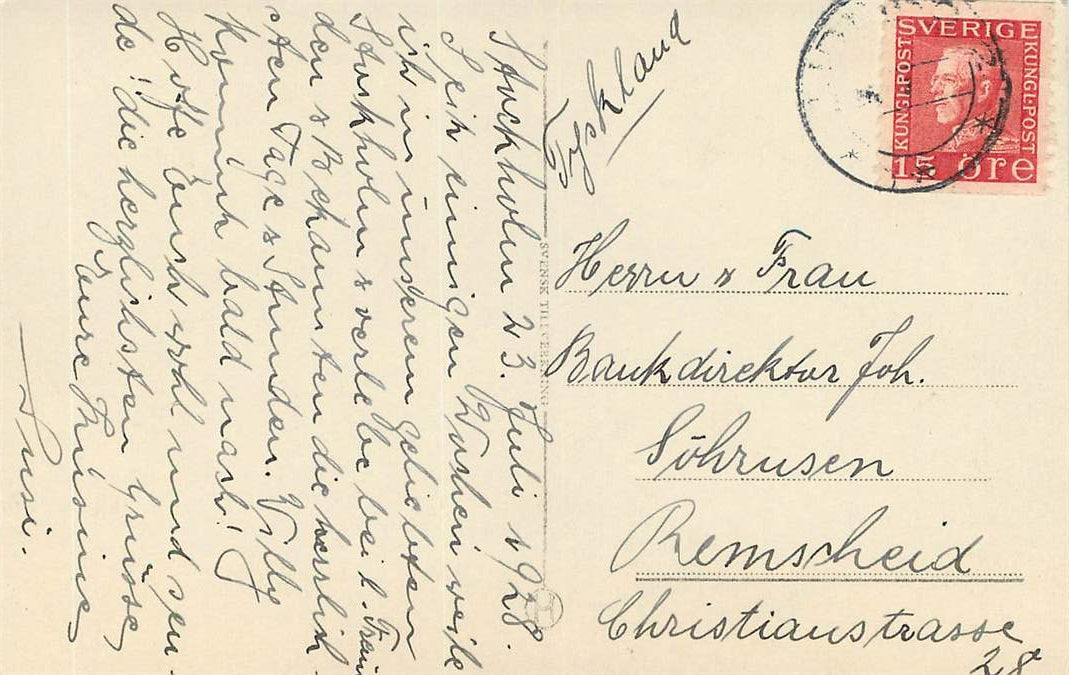 Stockholm 23. Juli 1928.
Seit einigen Wochen weile
ich in unserem geliebten
Stockholm & verlebe bei l.
den & Bekannten die herrlich
sten Tage & Stunden. Willy
kommt bald nach!
Hoffe Euch wohl und sen-
de die herzlichsten Grüsse
Eure Kusine
Susi.
SVENSK TILLVERKNING
Tyskland
SVERIGE
KUNGL·POST
KUNGL·POST
15 öre
Herrn & Frau
Bankdirektor Joh.
Remscheid
Christianstrasse
28